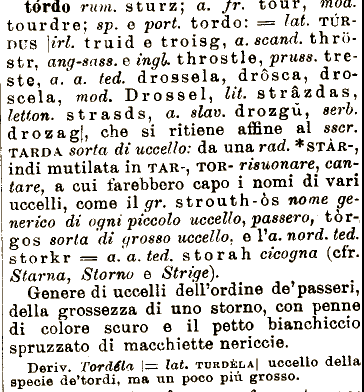 tórdo rum. sturz; a. fr. tour, mod.
tourdre; sp. e port. tordo: = lat. TÚR-
DUS [irl. truid e troisg, a. scand. thrö-
str, ang-sass. e ingl. throstle, pruss. tre-
ste, a. a. ted. drossela, drôsca, dro-
scela, mod. Drossel, lit. strâzdas,
letton. strasds, a. slav. drozgŭ, serb.
drozag], che si ritiene affine al sscr.
TARDA sorta di uccello: da una rad. *STÀR-,
indi mutilata in TAR-, TOR- risuonare, can-
tare, a cui farebbero capo i nomi di vari
uccelli, come il gr. strouth-òs nome ge-
nerico di ogni piccolo uccello, passero, tòr-
gos sorta di grosso uccello, e l'a. nord. ted.
storkr = a. a. ted. storah cicogna (cfr.
Starna, Storno e Strige).
Genere di uccelli dell'ordine de' passeri,
della grossezza di uno storno, con penne
di colore scuro e il petto bianchiccio
spruzzato di macchiette nericcie.
Deriv. Tordéla [= lat. TURDÈLA] uccello della
specie de' tordi, ma un poco più grosso.